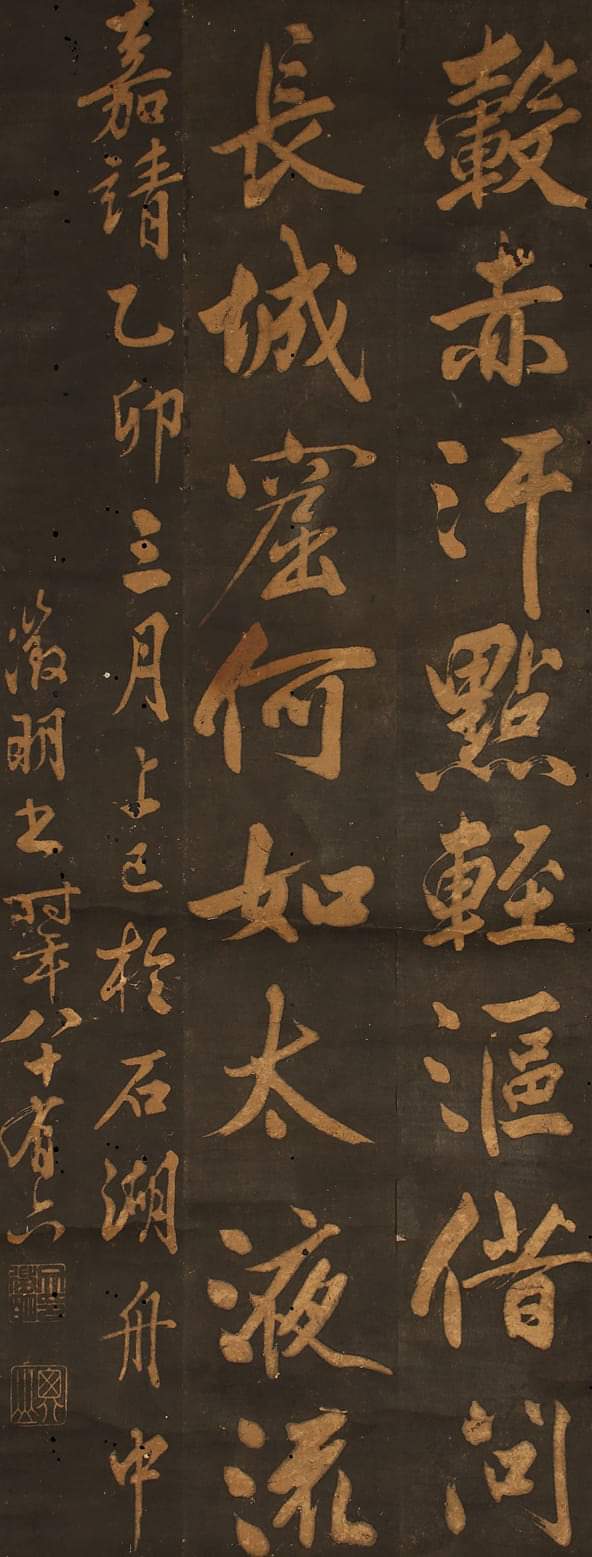 轂赤汗點輕漚借問
長城窟何如太液流
嘉靖乙卯三月上巳於石湖舟中
徵明書時年八十有六
衡山